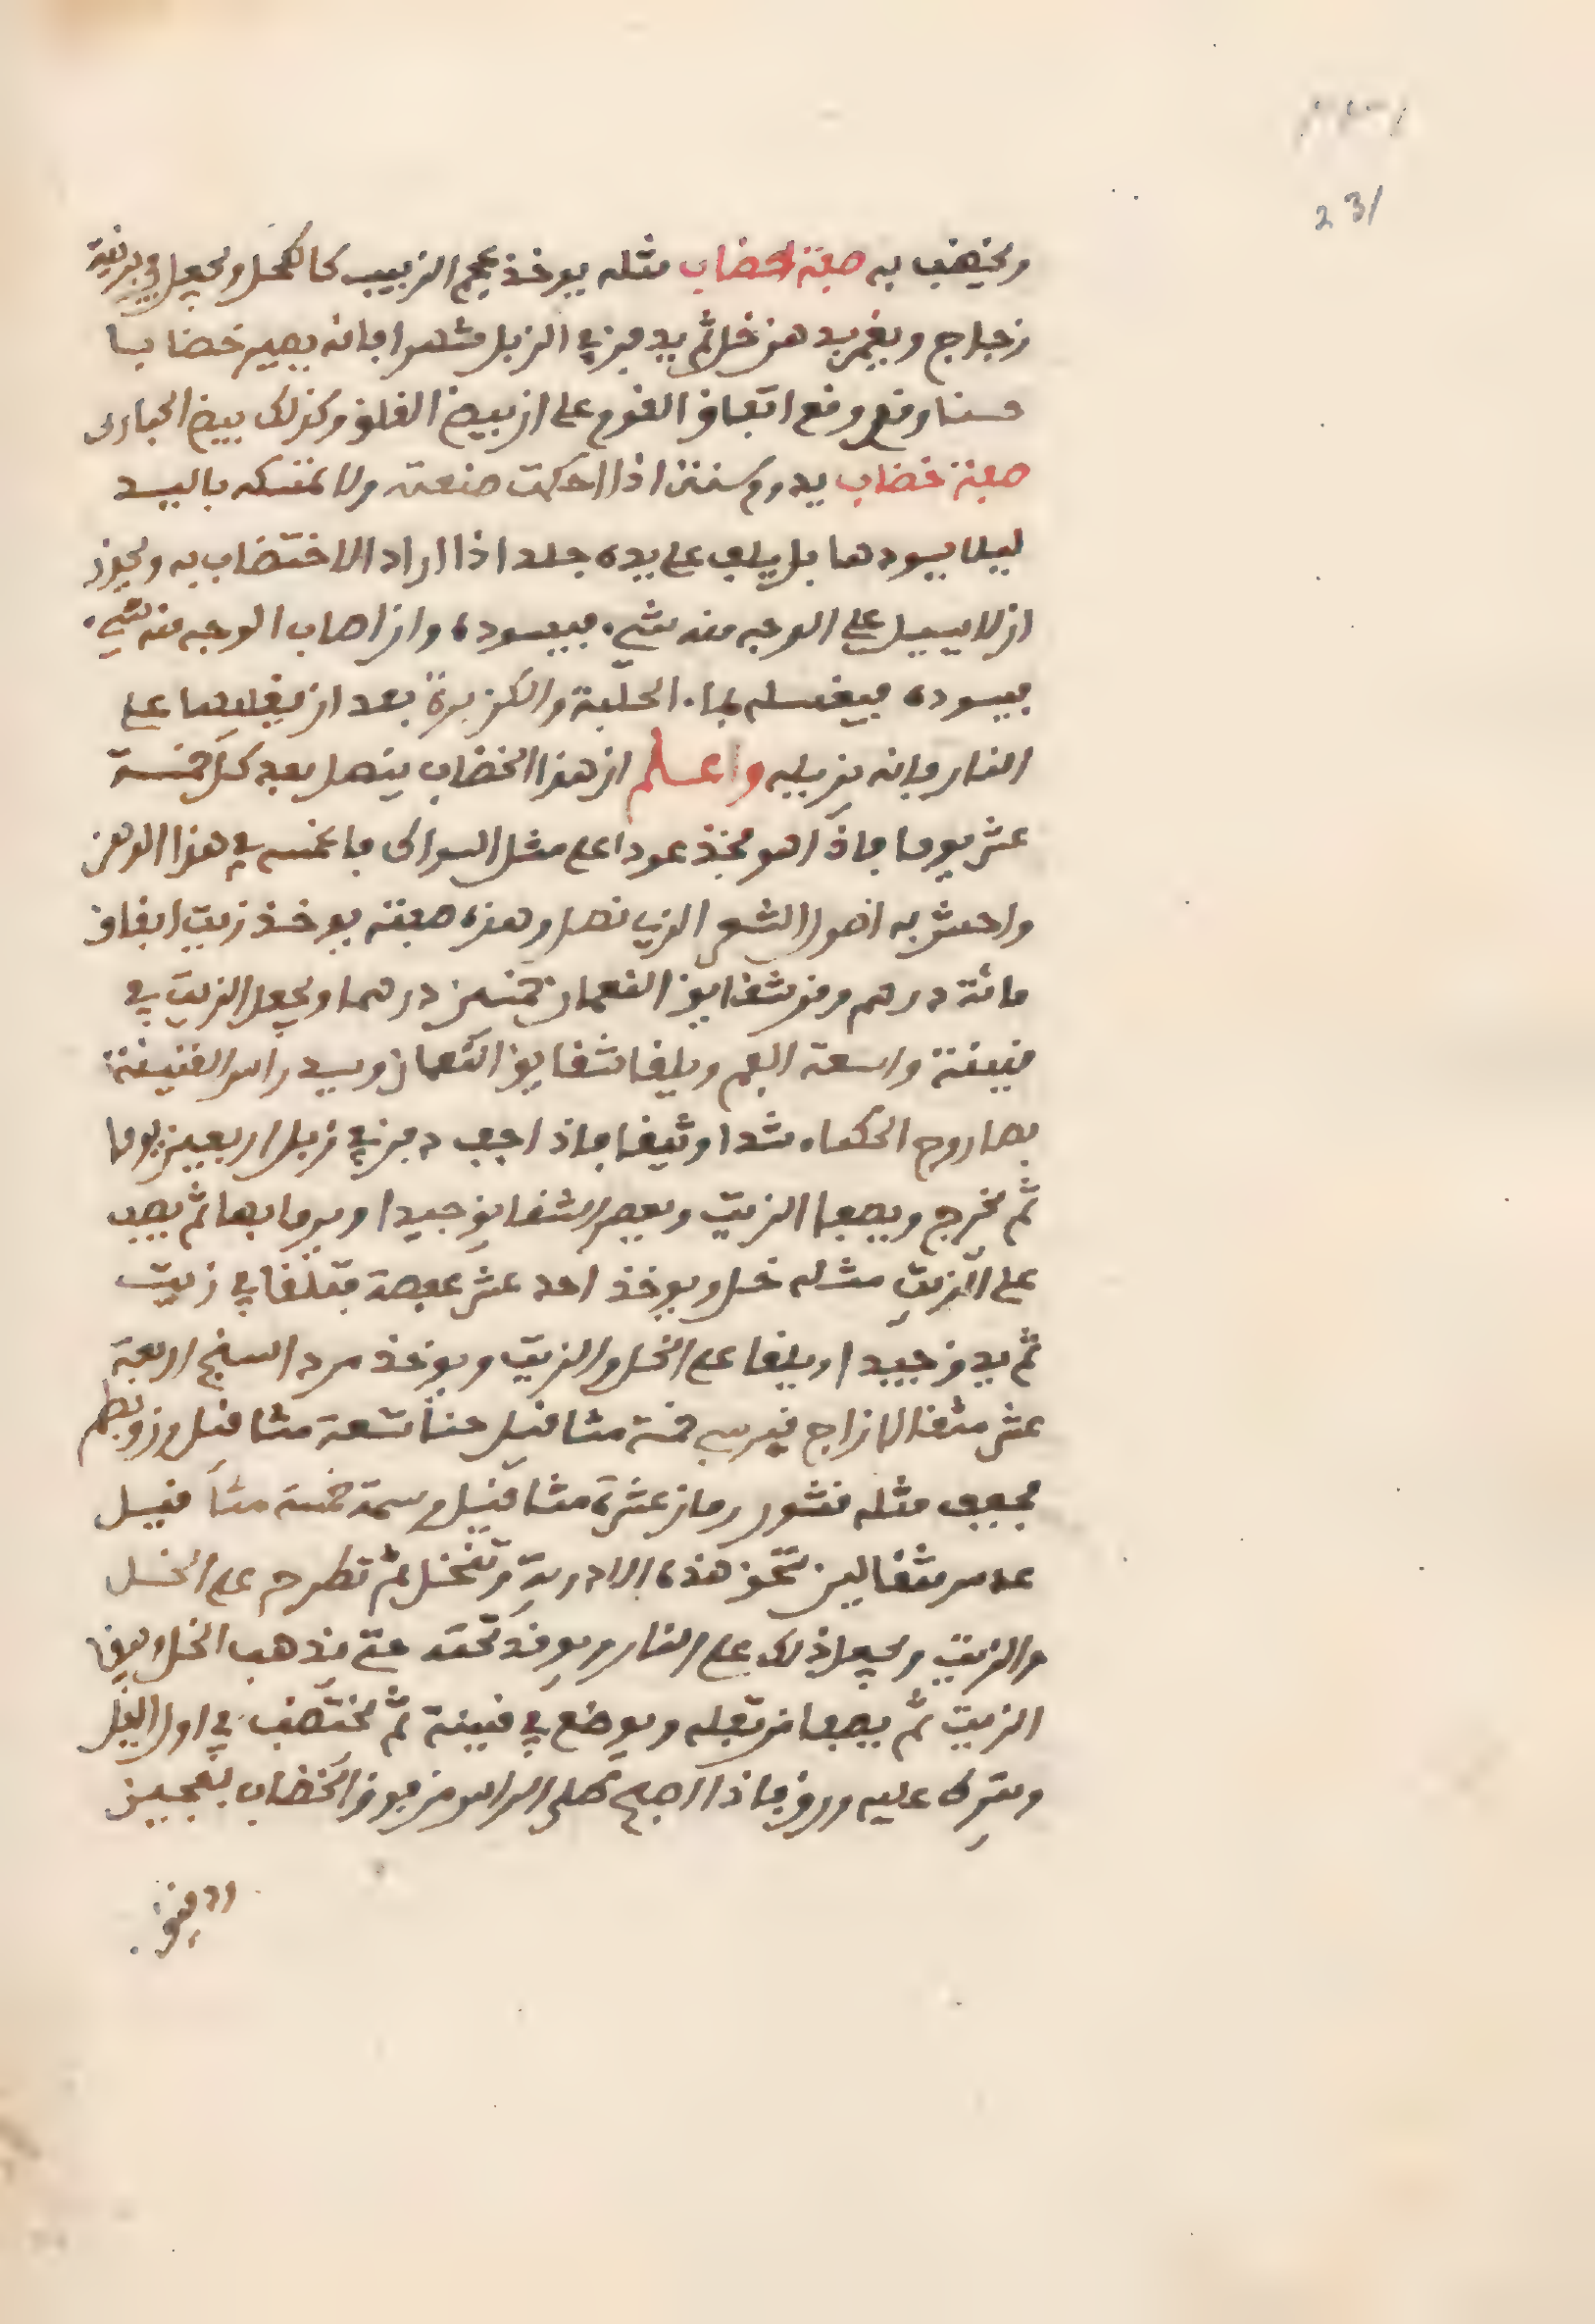 231
ويخضب به صفة لخضاب مثله يوخذ عجم الزبيب كالكحل ويجعل في برنية
زجاج ويغمر بدهن خل ثم يدفن في الزبل شهرا فانه يصير خضابا
حسنا وقع وقع اتفاق القوم على ان بيض اللقلق وكذلك بيض الحبارى
صفة خضاب يدوم سنة اذا احكمت صنعته ولا تمسكه باليد
ليلا يسودها بل يلف على يده جلد اذا اراد الاختضاب به ويحذر
ان لا يسيل على الوجه منه شيء فيسوده وان اصاب الوجه منه شيء
فيسوده فيغسله بماء الحلبة والكزبرة بعد ان يغليهما على
النار فانه يزيله واعلم ان هذا الخضاب ينصل بعد كل خمسة
عشر يوما فاذا هو فخذ عودا على مثل السواك فاغمسه في هذا الدهن
واحش به اصول الشعر الذي نصل وهذه صفته يوخذ زيت انفاق
مائة درهم ومن شقايق النعمان خمسين درهما ويجعل الزيت في
قنينة واسعة الفم ويلقا شقايق النعمان ويسد راس القنينة
بصاروج الحكماء شدا وثيقا فاذا جف دفن في زبل اربعين يوما
ثم يخرج ويصفا الزيت ويعصر الشقايق جيدا ويرما بها ثم يصب
على الزيت مثله خل ويوخذ احد عشر عفصة فتلقا في زيت
ثم يدق جيدا ويلقا على الخل والزيت ويوخذ مرداسنج اربعة
عشر مثقالا زاج قبرسي خمسة مثاقيل حنا تسعة مثاقيل وزوبطم
مجفف مثله قشور رمان عشرة مثاقيل وسمة خمسة مثاقيل
عدس مثقالين تسحق هذه الادوية وتنخل ثم تطرح على الخل
والزيت ويجعل ذلك على النار ويوقد تحته حتى يذهب الخل ويبقا
الزيت ثم يصفا من ثفله ويوضع في قنينة ثم يختضب في اول الليل
ويترك عليه ورق فاذا اصبح طلى الراس من فوق الخضاب بعجين